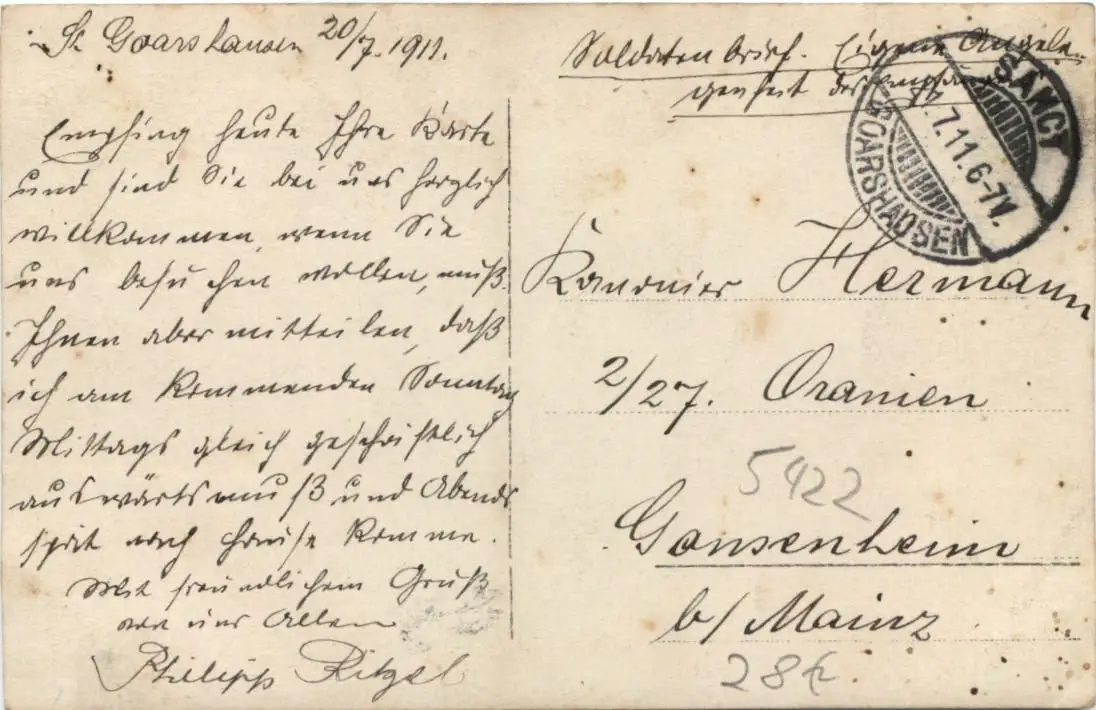 St. Goarshausen 20/7. 1911.
Empfing heute Ihre Karte
und sind Sie bei uns herzlich
willkommen, wenn Sie
uns besuchen wollen, muß
Ihnen aber mitteilen, daß
ich am kommenden Sonntag
Mittags gleich geschäftlich
auswärts muß und Abends
spät nach Hause komme.
Mit freundlichem Gruß
von uns Allen
Philipp Ritzel
Soldatenbrief. Eigene Angele-
genheit des Empfängers
SANCT
GOARSHAUSEN
7.11.6-7V.
Kanonier Hermann
2/27. Oranien
5422
Gonsenheim
b/ Mainz
28